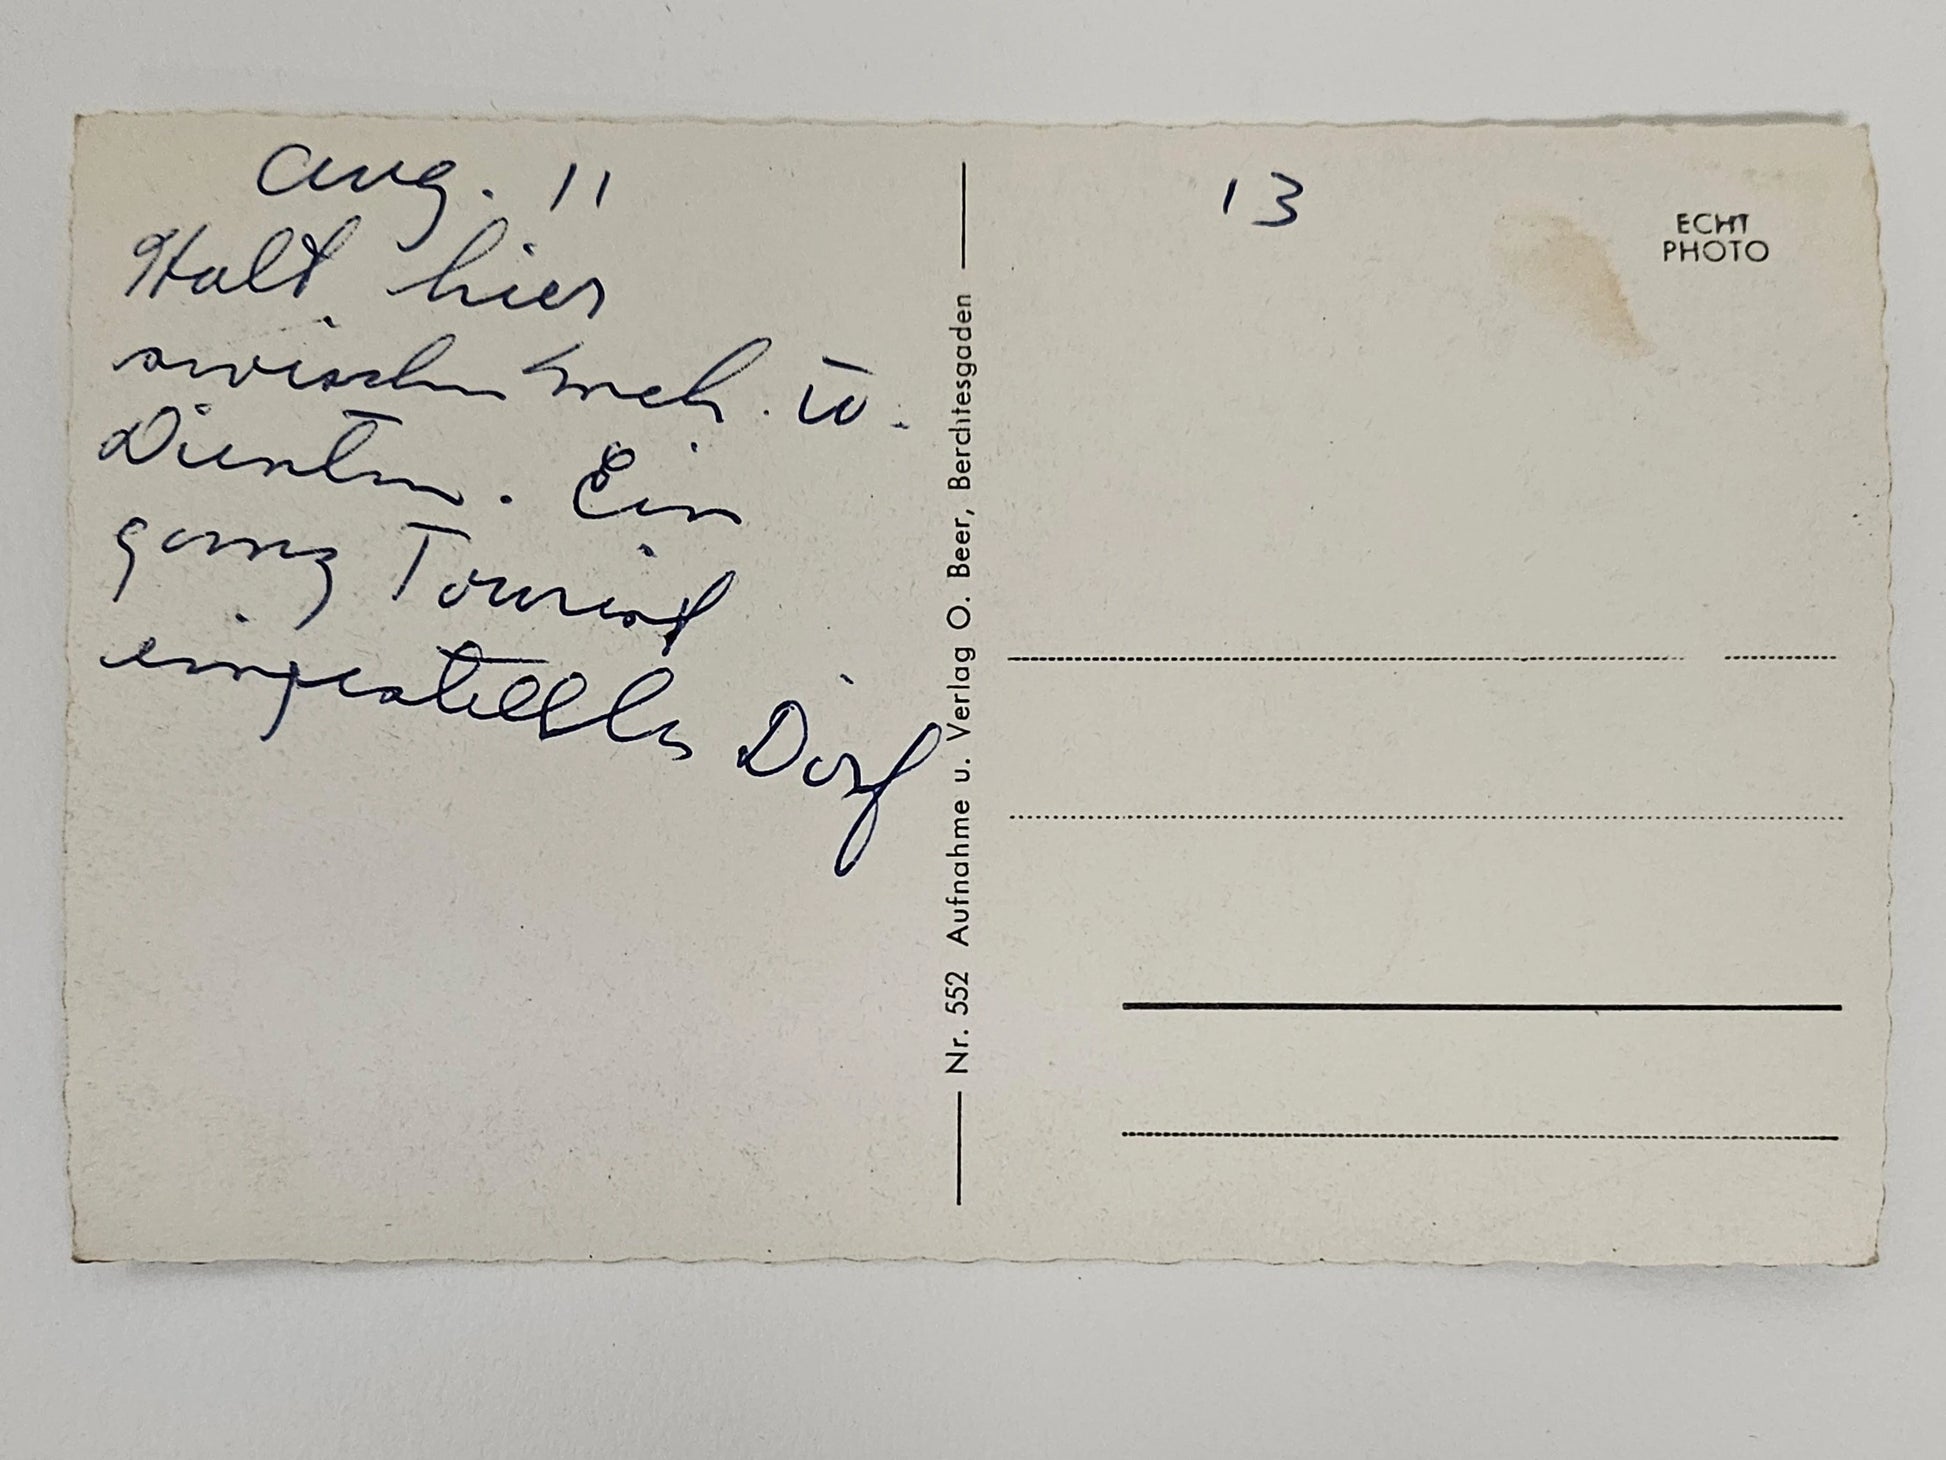 Aug. 11
Halt hier
zwischen u.
Dienten. Ein
ganz Tourist
eingestelltes Dorf
13
ECHT
PHOTO
Nr. 552 Aufnahme u. Verlag O. Beer, Berchtesgaden